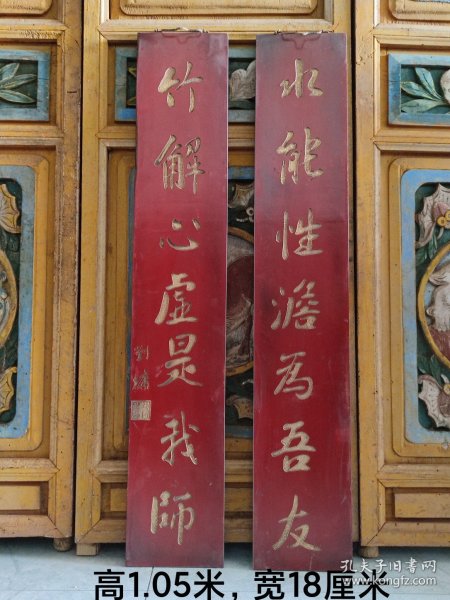 水能性澹為吾友
竹解心虛是我師
劉墉
高1.05米，宽18厘米
孔夫子旧书网
www.kongfz.com